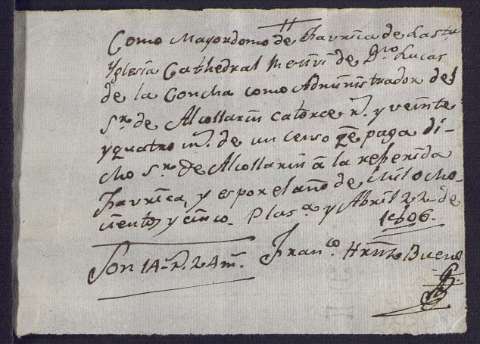 Como Mayordomo de Favrica de Sta
Yglesia Cathedral Reciví de Dn Lucas
de la Concha como Administrador del
Sr. de Alcollarin catorce r.s y veinte
y quatro m.s de un censo qe. paga di-
cho Sr. de Alcollarin á la referida
Favrica, y es por el año de mil ocho
cientos y cinco. Plas.a y Abril 22 de
1806.
Son 14 r.s 24 m.s Franco. Hrnz Bueno